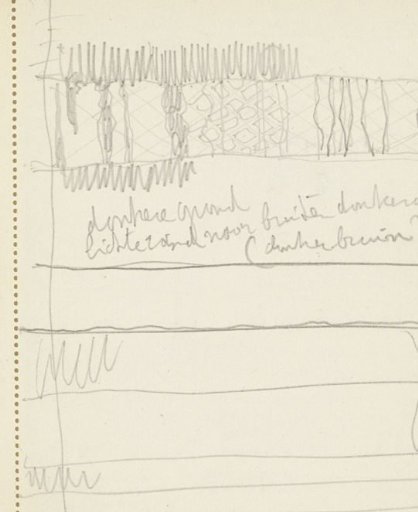 donkere grond
lichte rand voor buiten donker
(donker bruin